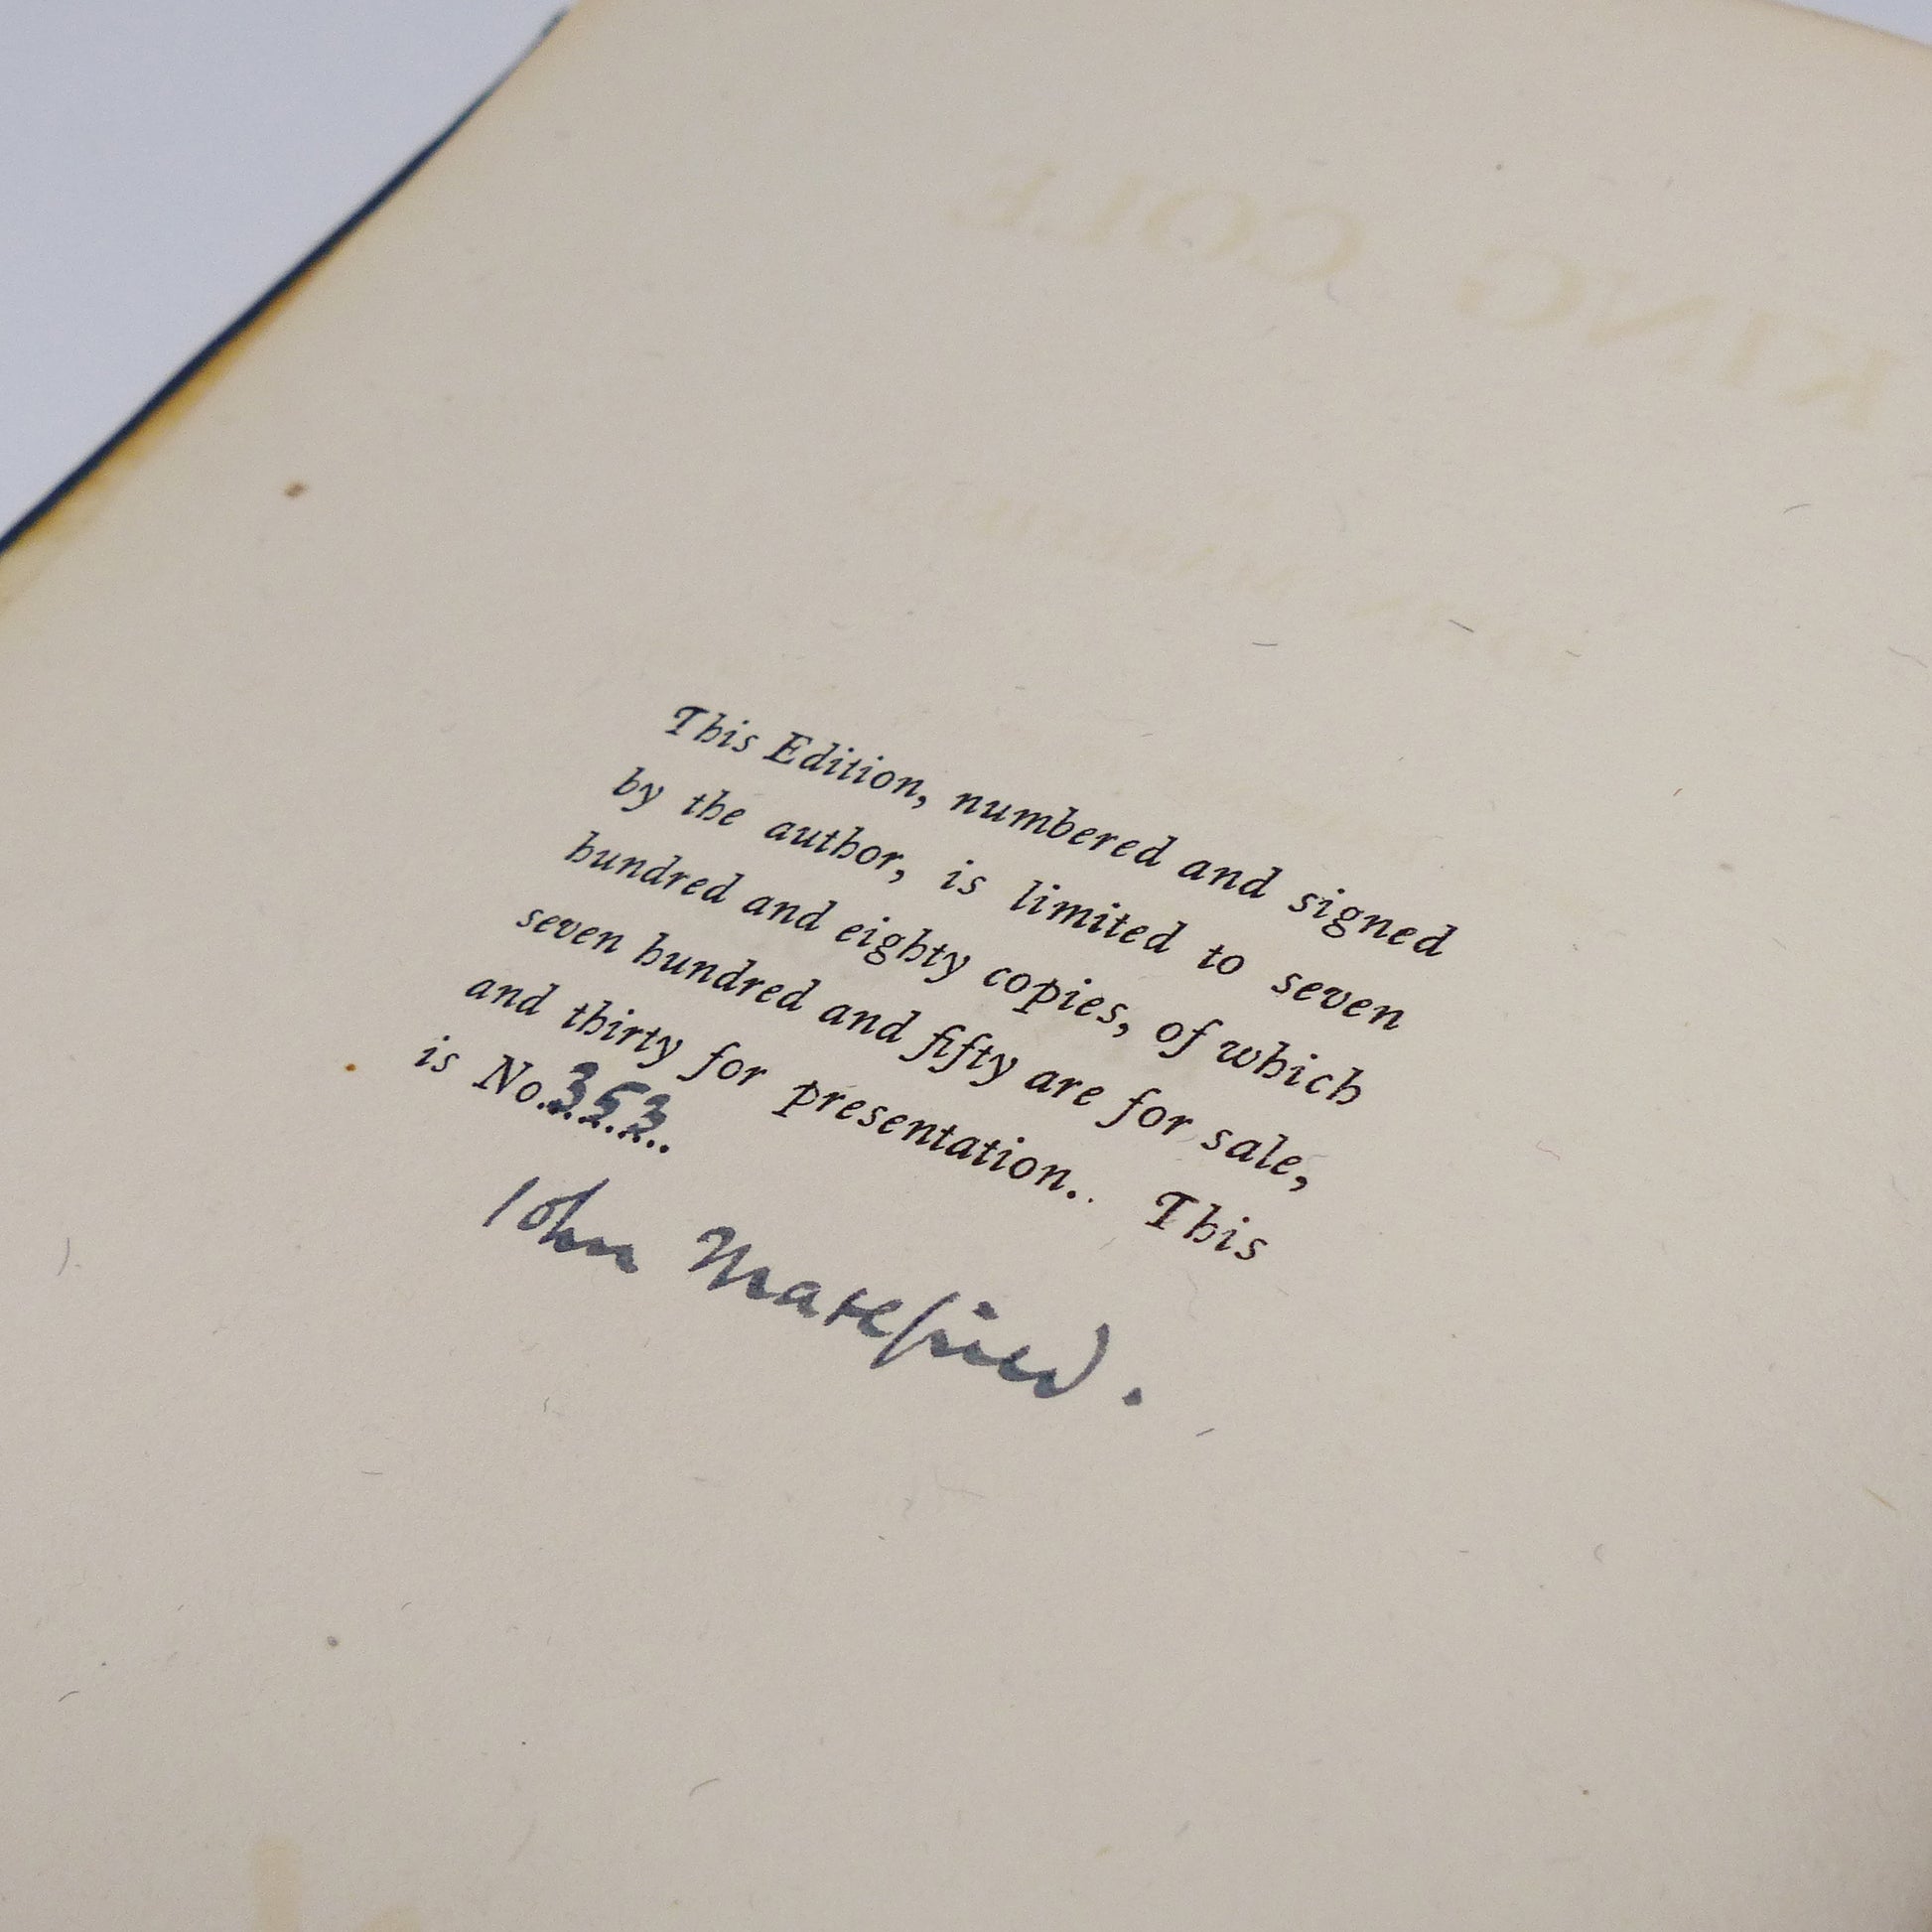 KING COLE
This Edition, numbered and signed
by the author, is limited to seven
hundred and eighty copies, of which
seven hundred and fifty are for sale,
and thirty for presentation. This
is No. 353
John Masefield.